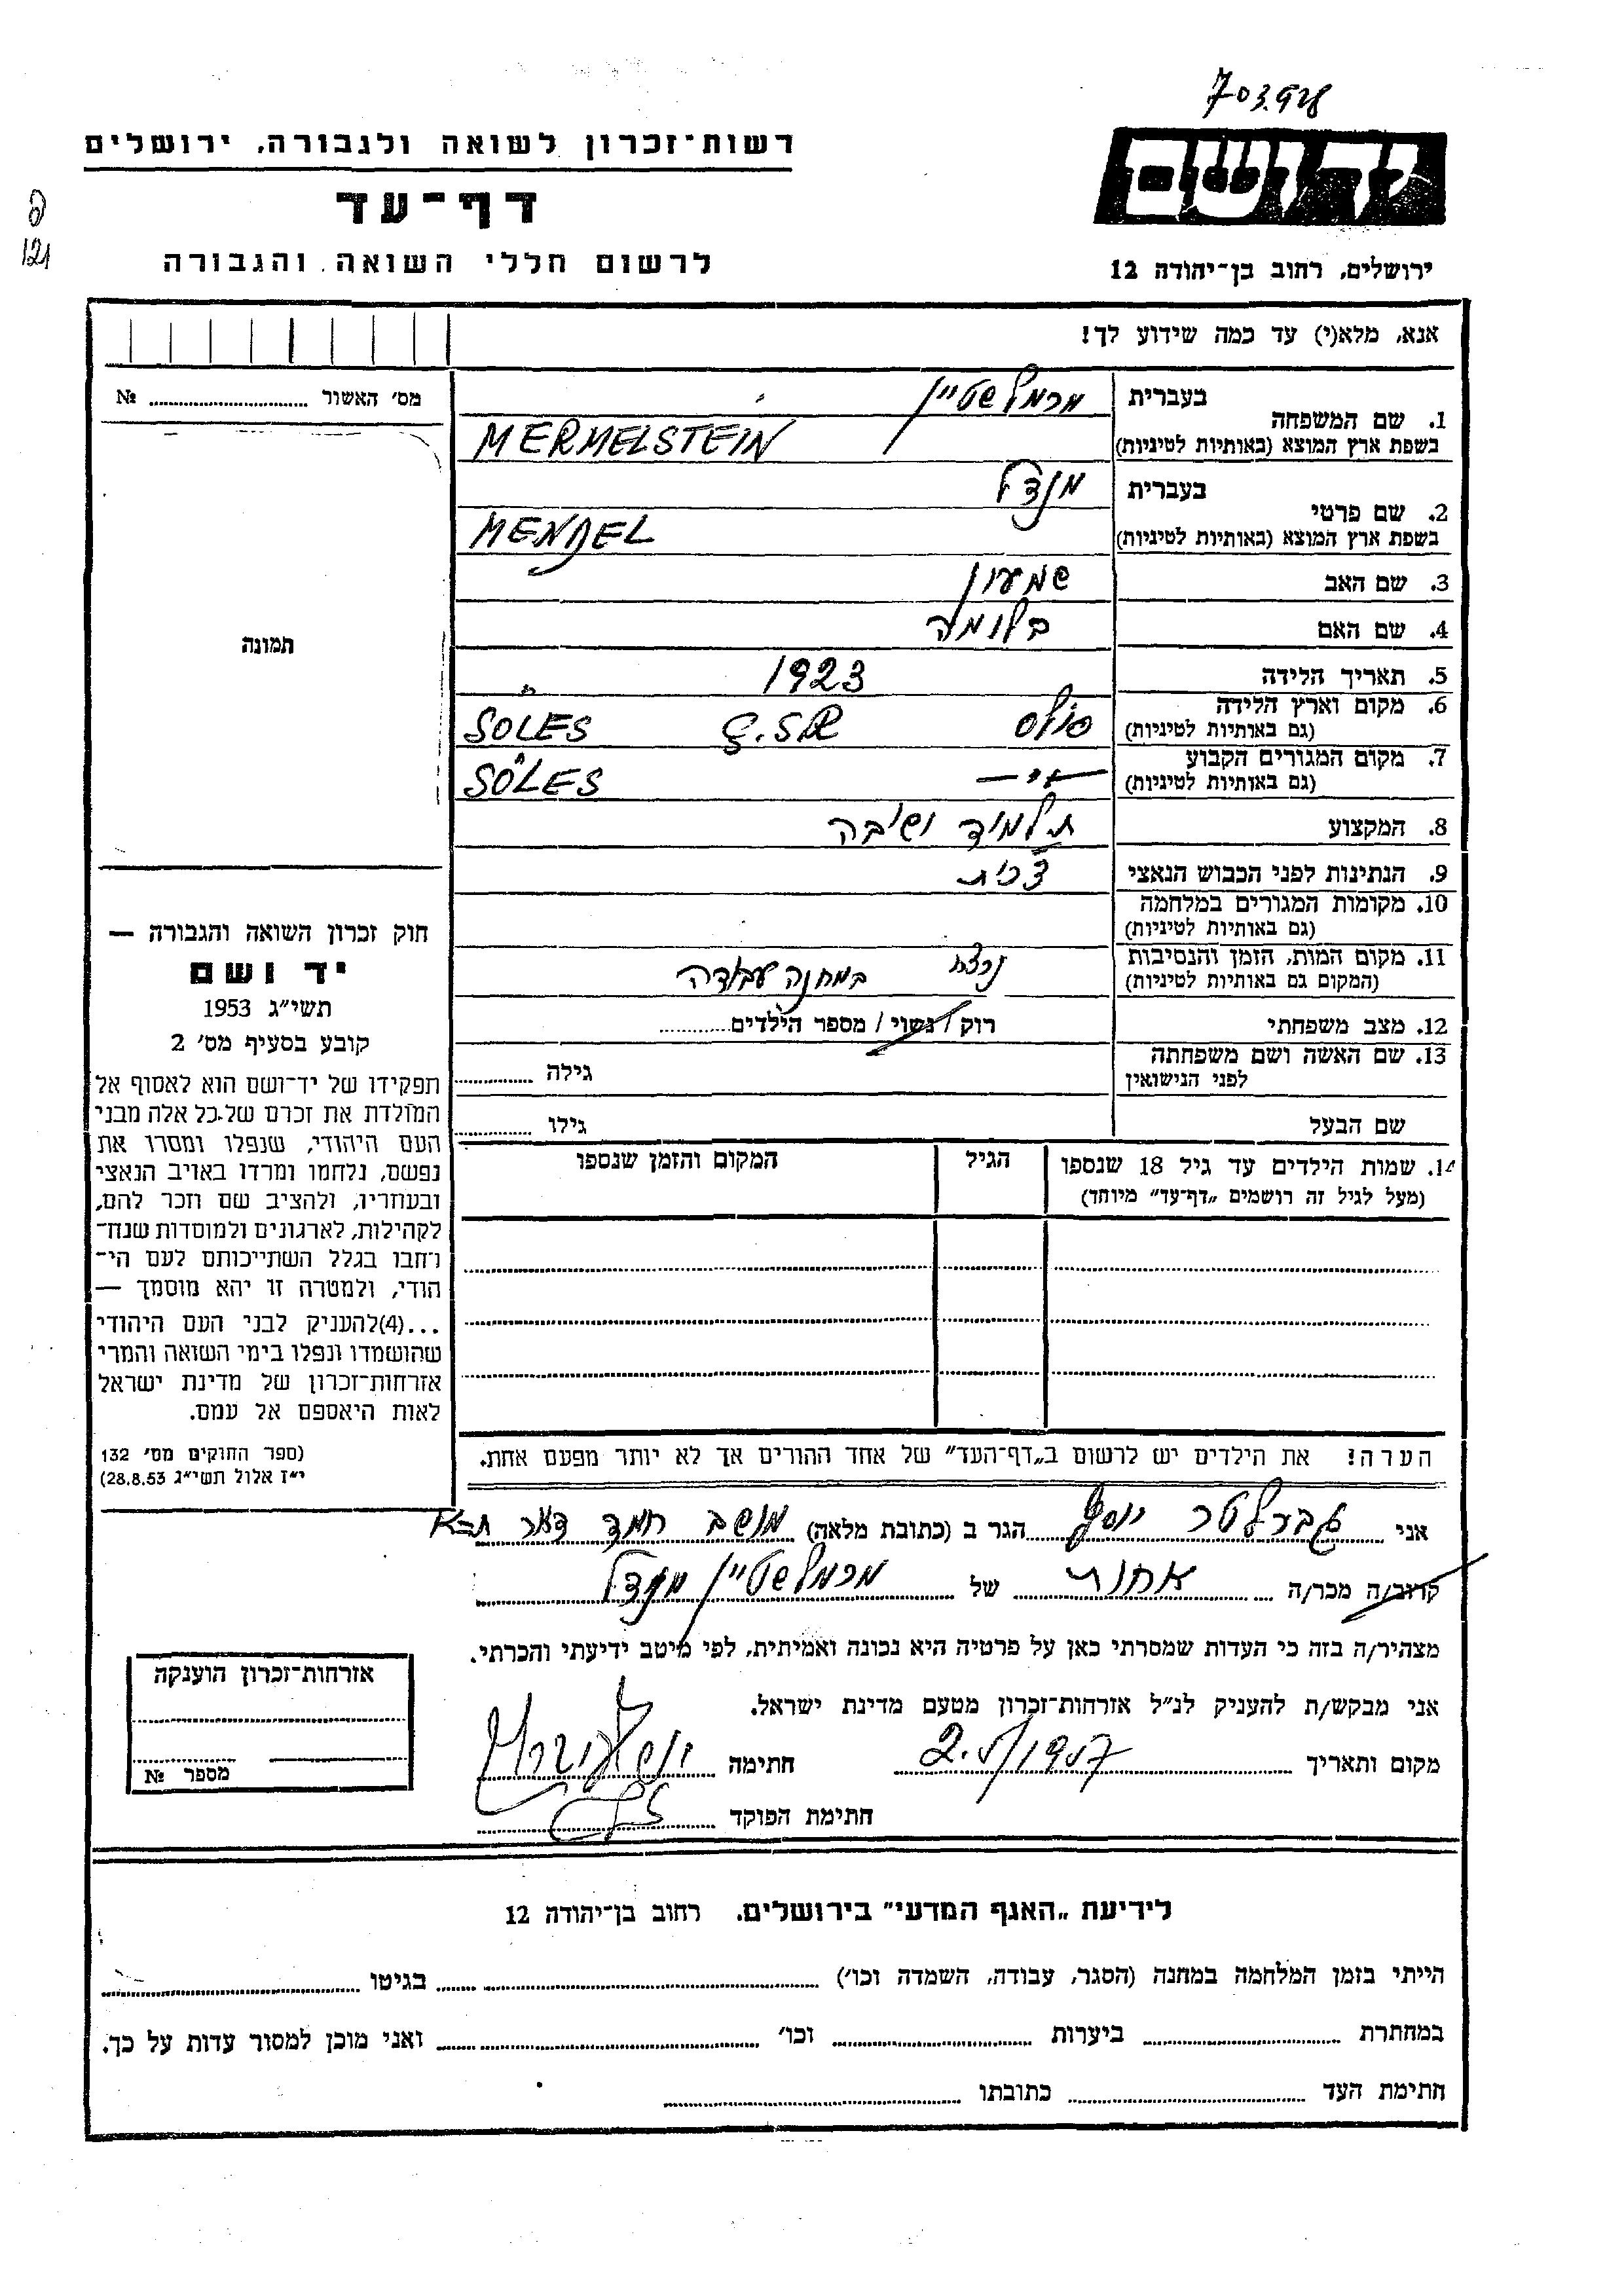 703.928
רשות-זכרון לשואה ולגבורה, ירושלים
יד ושם
דף-עד
לרשום חללי השואה והגבורה
ירושלים, רחוב בן-יהודה 12
121
אנא, מלא(י) עד כמה שידוע לך!
מס׳ האשור № 
1. שם המשפחה בעברית מרמלשטיין
בשפת ארץ המוצא (באותיות לטיניות) MERMELSTEIN
2. שם פרטי בעברית מנדל
בשפת ארץ המוצא (באותיות לטיניות) MENDEL
3. שם האב שמעון
4. שם האם בלומה
5. תאריך הלידה 1923
6. מקום וארץ הלידה סולס Č.S.R SOLES
(גם באותיות לטיניות)
7. מקום המגורים הקבוע SOLES
(גם באותיות לטיניות)
8. המקצוע תלמיד ישיבה
9. הנתינות לפני הכבוש הנאצי צכית
10. מקומות המגורים במלחמה
(גם באותיות לטיניות)
11. מקום המות, הזמן והנסיבות נרצח במחנה עבודה
(המקום גם באותיות לטיניות)
12. מצב משפחתי רוק / נשוי / מספר הילדים
13. שם האשה ושם משפחתה גילה
לפני הנישואין
שם הבעל גילו
14. שמות הילדים עד גיל 18 שנספו הגיל המקום והזמן שנספו
(מעל לגיל זה רושמים „דף-עד״ מיוחד)
תמונה
חוק זכרון השואה והגבורה —
יד ושם
תשי״ג 1953
קובע בסעיף מס׳ 2
תפקידו של יד-ושם הוא לאסוף אל
המולדת את זכרם של כל אלה מבני
העם היהודי, שנפלו ומסרו את
נפשם, נלחמו ומרדו באויב הנאצי
ובעוזריו, ולהציב שם וזכר להם,
לקהילות, לארגונים ולמוסדות שנח-
רחבו בגלל השתייכותם לעם הי-
הודי, ולמטרה זו יהא מוסמך —
...(4)להעניק לבני העם היהודי
שהושמדו ונפלו בימי השואה והמרי
אזרחות-זכרון של מדינת ישראל
לאות היאספם אל עמם.
(ספר החוקים מס׳ 132
י״ז אלול תשי״ג 28.8.53)
הערה! את הילדים יש לרשום ב„דף-העד״ של אחד ההורים אך לא יותר מפעם אחת.
אני יוסף הגר ב (כתובת מלאה) מושב חמד דאר
קרוב/ה מכר/ה של מרמלשטיין מנדל
מצהיר/ה בזה כי העדות שמסרתי כאן על פרטיה היא נכונה ואמיתית, לפי מיטב ידיעתי והכרתי.
אני מבקש/ת להעניק לנ״ל אזרחות-זכרון מטעם מדינת ישראל.
מקום ותאריך 2.5/1957 חתימה
חתימת הפוקד
אזרחות-זכרון הוענקה
מספר №
לידיעת „האגף המדעי״ בירושלים. רחוב בן-יהודה 12
הייתי בזמן המלחמה במחנה (הסגר, עבודה, השמדה וכו׳) בגיטו
במחתרת ביערות וכו׳ ואני מוכן למסור עדות על כך.
חתימת העד כתובתו